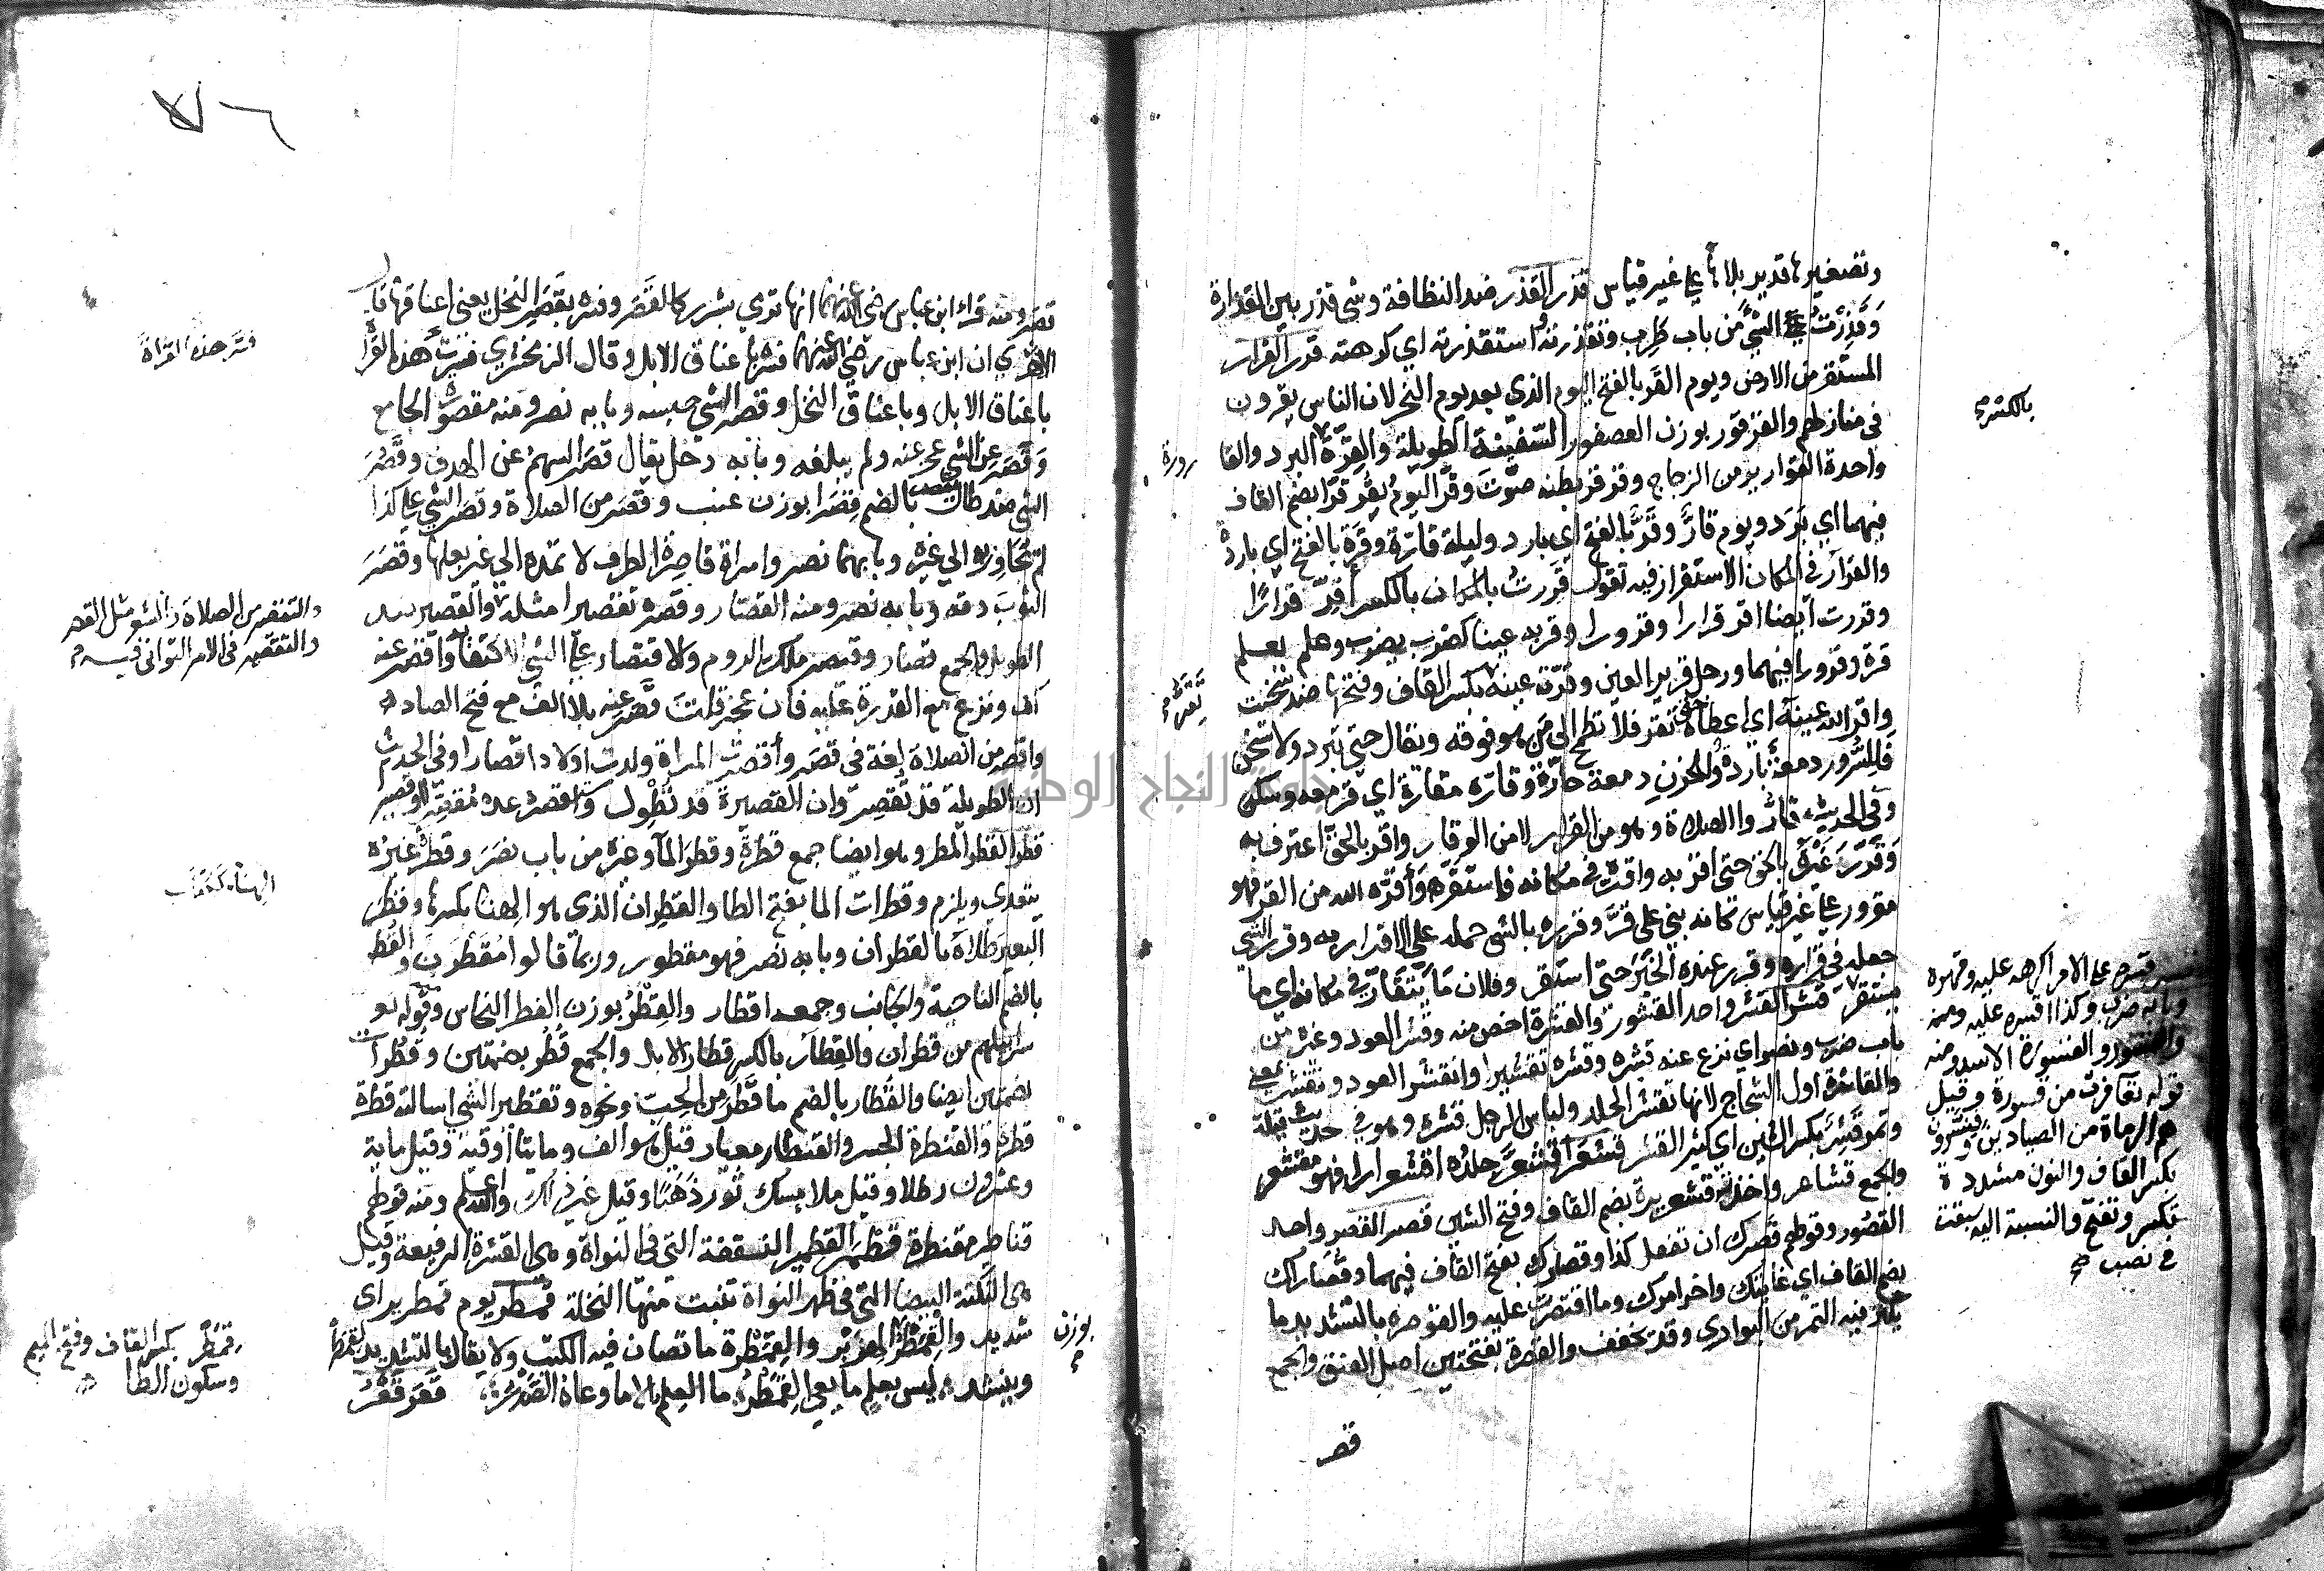 وتصغيرها قدير بلا هاء علي غير قياس قذر القذر ضد النظافة وشي قذر بين القذارة
وَقَذِرْتُ الشيءَ من باب طرب وتقذرته واستقذرته اي كرهته قرر القرار
المستقر من الارض ويوم القَر بالفتح اليوم الذي بعد يوم النحر لان الناس يقرون
في منازلهم والقرقور بوزن العصفور السفينة الطويلة والقِرَّة البرد والقا
رورة
واحدة القوارير من الزجاج وقرقر بطنه صوّت وقرَّ اليومُ يقُر قرّا بضم القاف
فيهما اي بَرَد ويوم قارٌّ وقَرٌّ بالفتح اي بارد وليلة قارّة وقَرَّة بالفتح اي باردة
والقرار في المكان الاستقرار فيه تقول قَرِرتُ بالمكان بالكسر أقَرّ قرارًا
وقررت ايضا اقر قرارا وقرورا وقر به عينا كضرب يضرب وعلم يعلم
قرة وقرورا فيهما ورجل قرير العين وقرّت عينه بكسر القاف وفتحها ضد سخنت
واقر الله عينَه اي اعطاه حتي تقر فلا تطمح الى من هو فوقه ويقال حتي تبرد ولا تسخن
فللسُّرور دمعةٌ باردة وللحزن دمعة حارّة وقارّه مقارّة اي قر معه وسكن
وفي الحديث قارُّوا الصلاة وهو من القرار لا من الوقار واقر بالحق اعترف به
وَقَرَّرَه غَيْرُه بالحق حتى اقر به واقره في مكانه فاستقر وأقرّه الله من القر فهو
مقرور علي غير قياس كانه بني على قُرَّ وقرره بالشي حمله على الاقرار به وقرر الشي
جعله في قراره وقرر عنده الخَبَرَ حتى استقر وفلان ما يَتَقارّ في مكانه اي ما
يستقر قشر القشر واحد القشور والقشرة اخص منه وقشر العود وغيره من
باب ضرب ونصر اي نزع عنه قشره وقشره تقشيرا وانقشر العود وتقشر بمعني
والقاشرة اول الشجاج لانها تقشر الجلد ولباس الرجل قشره وهو في حديث قيلة
وتمر قَشِر بكسر الشين اي كثير القشر قشعر اقشعَرَّ جلدُه اقشعرارا فهو مقشعر
والجمع قشاعر واخذته قشعريرة بضم القاف وفتح الشين قصر القصر واحد
القصُور وقولهم قصرك ان تفعل كذا وقصارك بفتح القاف فيهما وقُصاراك
بضم القاف اي غايتك واخر امرك وما اقتصرت عليه والقوصره بالتشديد ما
يكنز فيه التمر من البواري وقد تخفف والقصرة بفتحتين اصل العنق والجمع
قصر
بالكسر
قسر قسره على الامر اكرهه عليه وقهره
وبابه ضرب وكذا اقتسره عليه ومنه
والقسور والقسورة الاسد ومنه
قوله تعا فرت من قسورة وقيل
هم الرماة من الصيادين وقنسرون
بكسر القاف والنون مشددة
تكسر وتفتح والنسبة اليه سبقت
في نصب صح
٧٦
قصر ومنه قراء ابن عباس رضي الله عنهما انها ترمي بشرر كالقَصَر وفسره بقَصَر النخل يعني اعناقها قال
الازهري ان ابن عباس رضي الله عنهما فسرها باعناق الابل وقال الزمخشري فسرت هذه القراة
باعناق الابل وباعناق النخل وقصر الشي حبسه وبابه نصر ومنه مقصورة الجامع
وقَصَر عن الشي عجز عنه ولم يبلغه وبابه دخل يقال قصر السهمُ عن الهدف وقَصُرَ
الشي ضد طال يقصر بالضم قِصَرا بوزن عنب وقصر من الصلاة وقصر الشي علي كذا
لم يجاوز به الي غيره وبابهما نصر وامراة قاصِرة الطرف لا تمده الي غير بعلها وقصَرَ
الثوبَ دقه وبابه نصر ومنه القصّار وقصّره تقصيرا مثله والقصير ضد
الطويل والجمع قصار وقيصر ملك الروم والاقتصار علي الشي الاكتفا به واقصر عنه
كف ونزع مع القدرة عليه فان عجز قلتَ قَصَر عنه بلا الف مع فتح الصاد
واقصر من الصلاة لغة في قصَر وأقصرت المراة ولدت اولادا قصارا وفي الحديث
ان الطويلة قد تُقصِر وان القصيرة قد تُطِول واستقصره عده مقصرا او قصيرا
قطر القطر المطر وهو ايضا جمع قطرة وقطر المآء وغيره من باب نصَرَ وقطره غيره
يتعدي ويلزم وقطرات الما بفتح الطا والقطِران الذي هو الهنا بكسرها وقطَر
البعير طلاه بالقطران وبابه نصر فهو مقطور وربما قالوا مُقَطْرَن والقُطر
بالضم الناحية والجانب وجمعه اقطار والقِطرُ بوزن الفطر النحاس وقوله تعا
سرابيلهم من قطران والقِطار بالكسر قطار الابل والجمع قُطُر بضمتين وقُطُرات
بضمتين ايضا والقُطار بالضم ما قَطَر من الحِب ونحوه وتقطير الشي اسالته قطرة
قطرة والقنطرة الجسر والقنطار معيار قيل هو الف ومايتا اوقية وقيل ماية
وعشرون رطلا وقيل ملا مسك ثَور ذَهَبًا وقيل غير ذلك والله اعلم ومنه قولهم
قناطير مقنطرة قطمر القطمير الفوفة التي في النواة وهي القشرة الرقيقة وقيل
هي النكتة البيضا التي في ظهر النواة تنبت منها النخلة قمطر يوم قمطرير اي
شديد والقِمَطْر بوزن الهِزَبْر والقِمَطْرة ما تصان فيه الكتب ولا يقال بالتشديد
وينشد ليس بعلم ما يعي القِمَطْرُ ما العلم الا ما وعاه الصَدْرُ قعر قَعْرُ
فسّر هذه القراة
والتقصير من الصلاة والشعر مثل القصر
والتقصير في الامر التواني فيه
قِمَطْر بكسر القاف وفتح الميم
وسكون الطا
بوزن